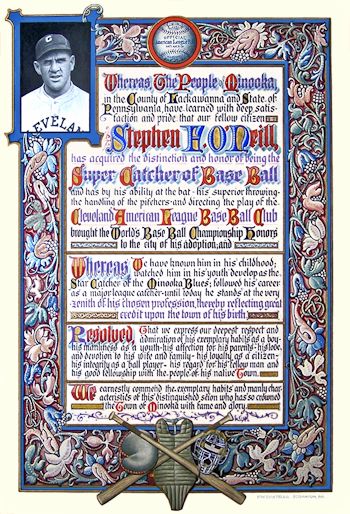 OFFICIAL
American League
CLEVELAN
Whereas, The People of Minooka,
in the County of Lackawanna and State of
Pennsylvania, have learned with deep satis-
faction and pride that our fellow citizen
Stephen F. O'Neill,
has acquired the distinction and honor of being the
Super Catcher of Base Ball
and has by his ability at the bat - his superior throwing -
the handling of the pitchers - and directing the play of the
Cleveland American League Base Ball Club
brought the World's Base Ball Championship Honors
to the city of his adoption; and
Whereas, We have known him in his childhood;
watched him in his youth develop as the
Star Catcher of the Minooka Blues; followed his career
as a major league catcher - until today he stands at the very
zenith of his chosen profession, thereby reflecting great
credit upon the town of his birth;
Resolved, That we express our deepest respect and
admiration of his exemplary habits as a boy -
his manliness as a youth - his affection for his parents - his love
and devotion to his wife and family - his loyalty as a citizen -
his integrity as a ball player - his regard for his fellow man and
his good fellowship with the people of his native Town.
We earnestly commend the exemplary habits and manly char-
acteristics of this distinguished scion who has so crowned
the Town of Minooka with fame and glory.
SCRANTON, PA.